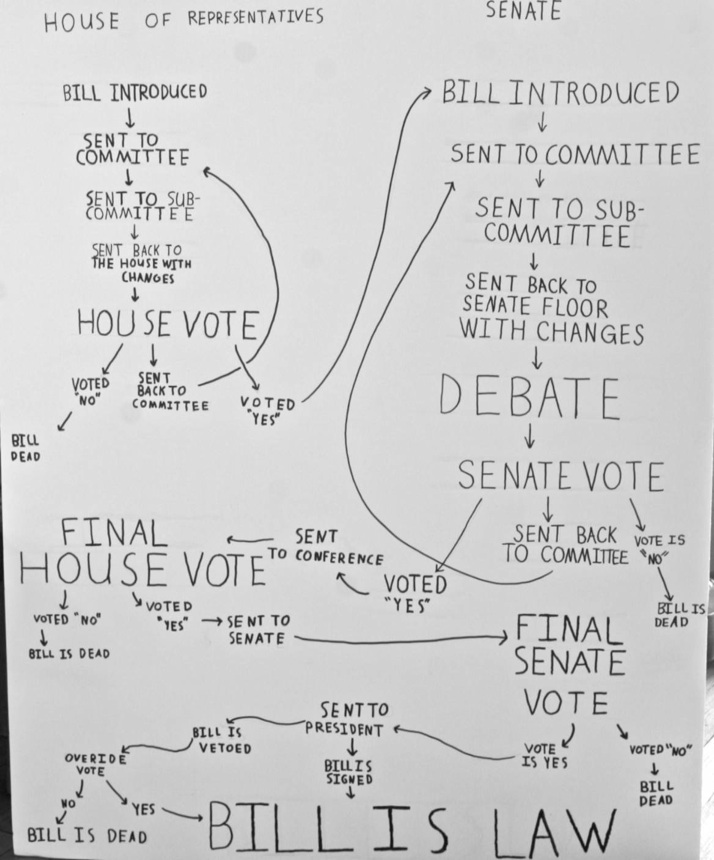 HOUSE OF REPRESENTATIVES
BILL INTRODUCED
SENT TO
COMMITTEE
SENT TO SUB-
COMMITTEE
SENT BACK TO
THE HOUSE WITH
CHANGES
HOUSE VOTE
VOTED
"NO"
BILL
DEAD
SENT
BACK TO
COMMITTEE
VOTED
"YES"
SENATE
BILL INTRODUCED
SENT TO COMMITTEE
SENT TO SUB-
COMMITTEE
SENT BACK TO
SENATE FLOOR
WITH CHANGES
DEBATE
SENATE VOTE
VOTED
"YES"
SENT BACK
TO COMMITTEE
VOTE IS
"NO"
BILL IS
DEAD
SENT
TO CONFERENCE
FINAL
HOUSE VOTE
VOTED "NO"
BILL IS DEAD
VOTED
"YES"
SENT TO
SENATE
FINAL
SENATE
VOTE
VOTE
IS YES
VOTED "NO"
BILL
DEAD
SENT TO
PRESIDENT
BILL IS
VETOED
BILL IS
SIGNED
OVERIDE
VOTE
NO
BILL IS DEAD
YES
BILL IS LAW